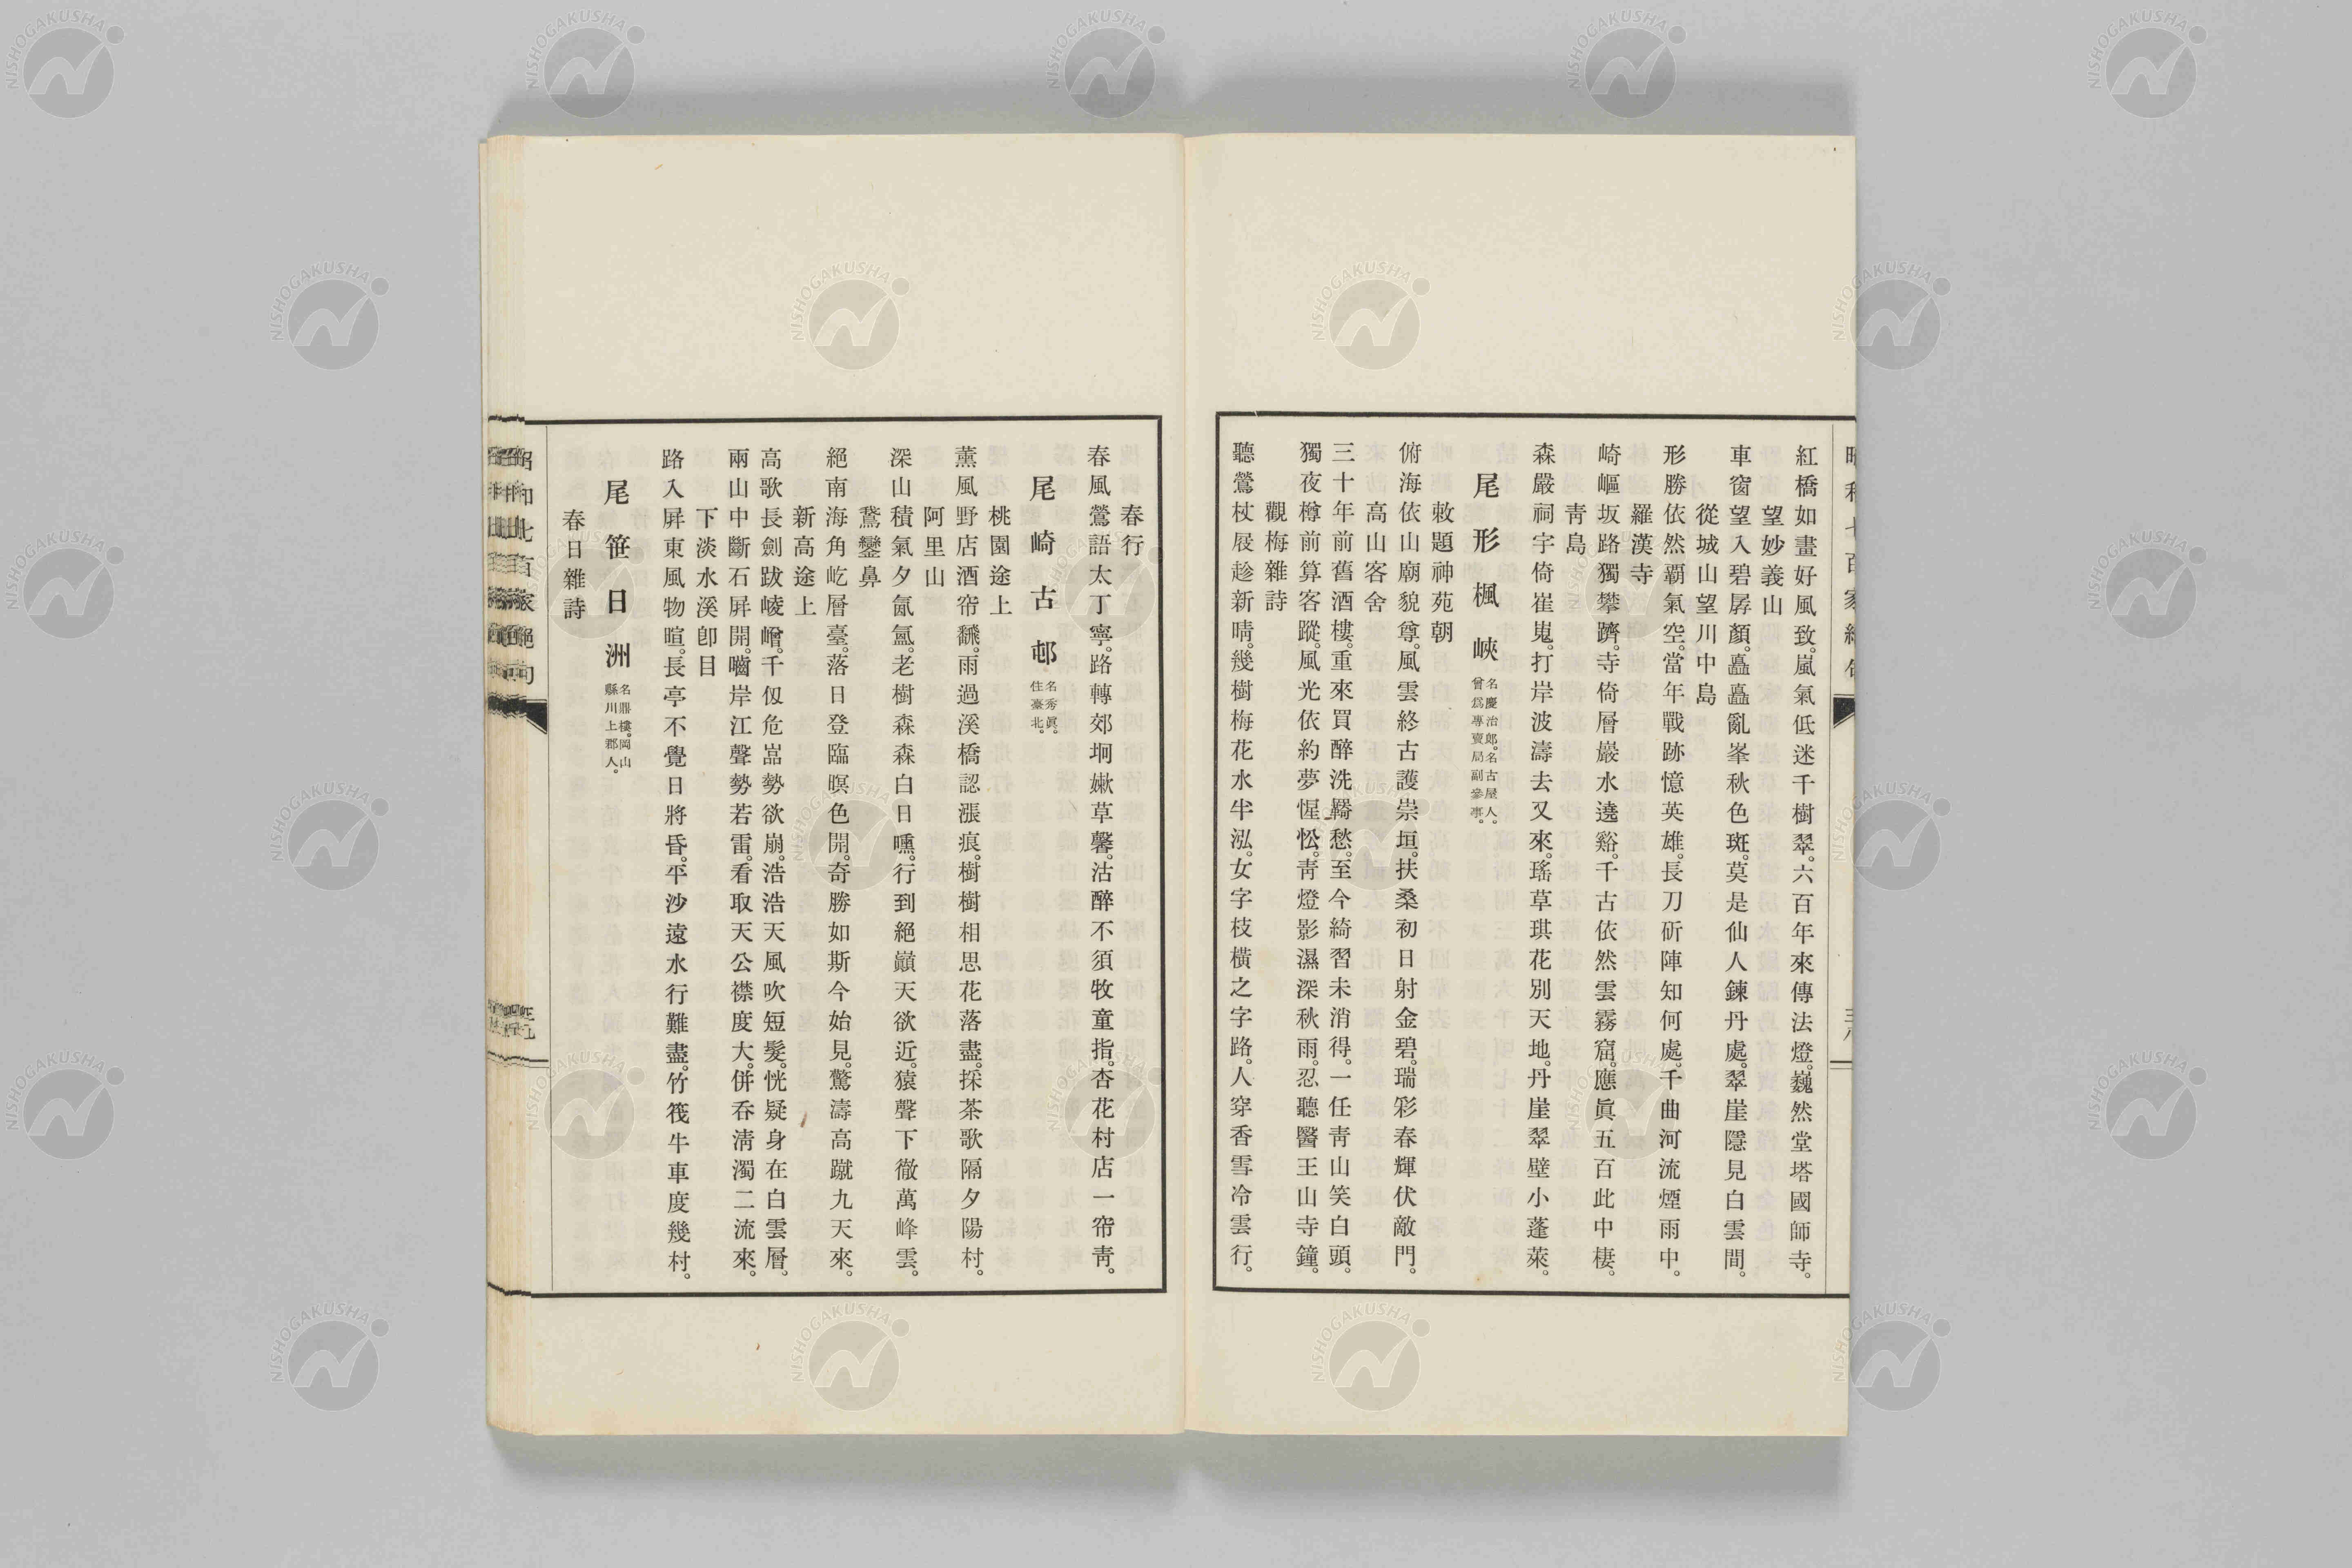 紅橋如畫好風致。嵐氣低迷千樹翠。六百年來傳法燈。巍然堂塔國師寺。
望妙義山
車窗望入碧孱顏。矗矗亂峯秋色斑。莫是仙人鍊丹處。翠崖隱見白雲間。
從城山望川中島
形勝依然覇氣空。當年戰跡憶英雄。長刀斫陣知何處。千曲河流煙雨中。
羅漢寺
崎嶇坂路獨攀躋。寺倚層巖水遶谿。千古依然雲霧窟。應眞五百此中棲。
靑島
森嚴祠宇倚崔嵬。打岸波濤去又來。瑤草琪花別天地。丹崖翠壁小蓬萊。
尾形楓峽
名慶治郎。名古屋人。
曾爲專賣局副參事。
敕題神苑朝
俯海依山廟貌尊。風雲終古護崇垣。扶桑初日射金碧。瑞彩春輝伏敵門。
高山客舍
三十年前舊酒樓。重來買醉洗羇愁。至今綺習未消得。一任靑山笑白頭。
獨夜樽前算客蹤。風光依約夢惺忪。靑燈影濕深秋雨。忍聽醫王山寺鐘。
觀梅雜詩
聽鶯杖屐趁新晴。幾樹梅花水半泓。女字枝橫之字路。人穿香雪冷雲行。
春行
春風鶯語太丁寧。路轉郊坰嫩草馨。沽醉不須牧童指。杏花村店一帘靑。
尾崎古邨
名秀眞。
住臺北。
桃園途上
薰風野店酒帘飜。雨過溪橋認漲痕。樹樹相思花落盡。採茶歌隔夕陽村。
阿里山
深山積氣夕氤氳。老樹森森白日曛。行到絕巓天欲近。猿聲下徹萬峰雲。
鵞鑾鼻
絕南海角屹層臺。落日登臨暝色開。奇勝如斯今始見。驚濤高蹴九天來。
新高途上
高歌長劍跋崚嶒。千仭危嵓勢欲崩。浩浩天風吹短髮。恍疑身在白雲層。
兩山中斷石屛開。囓岸江聲勢若雷。看取天公襟度大。併呑淸濁二流來。
下淡水溪卽目
路入屛東風物暄。長亭不覺日將昏。平沙遠水行難盡。竹筏牛車度幾村。
尾笹日洲
名鼎樓。岡山
縣川上郡人。
春日雜詩